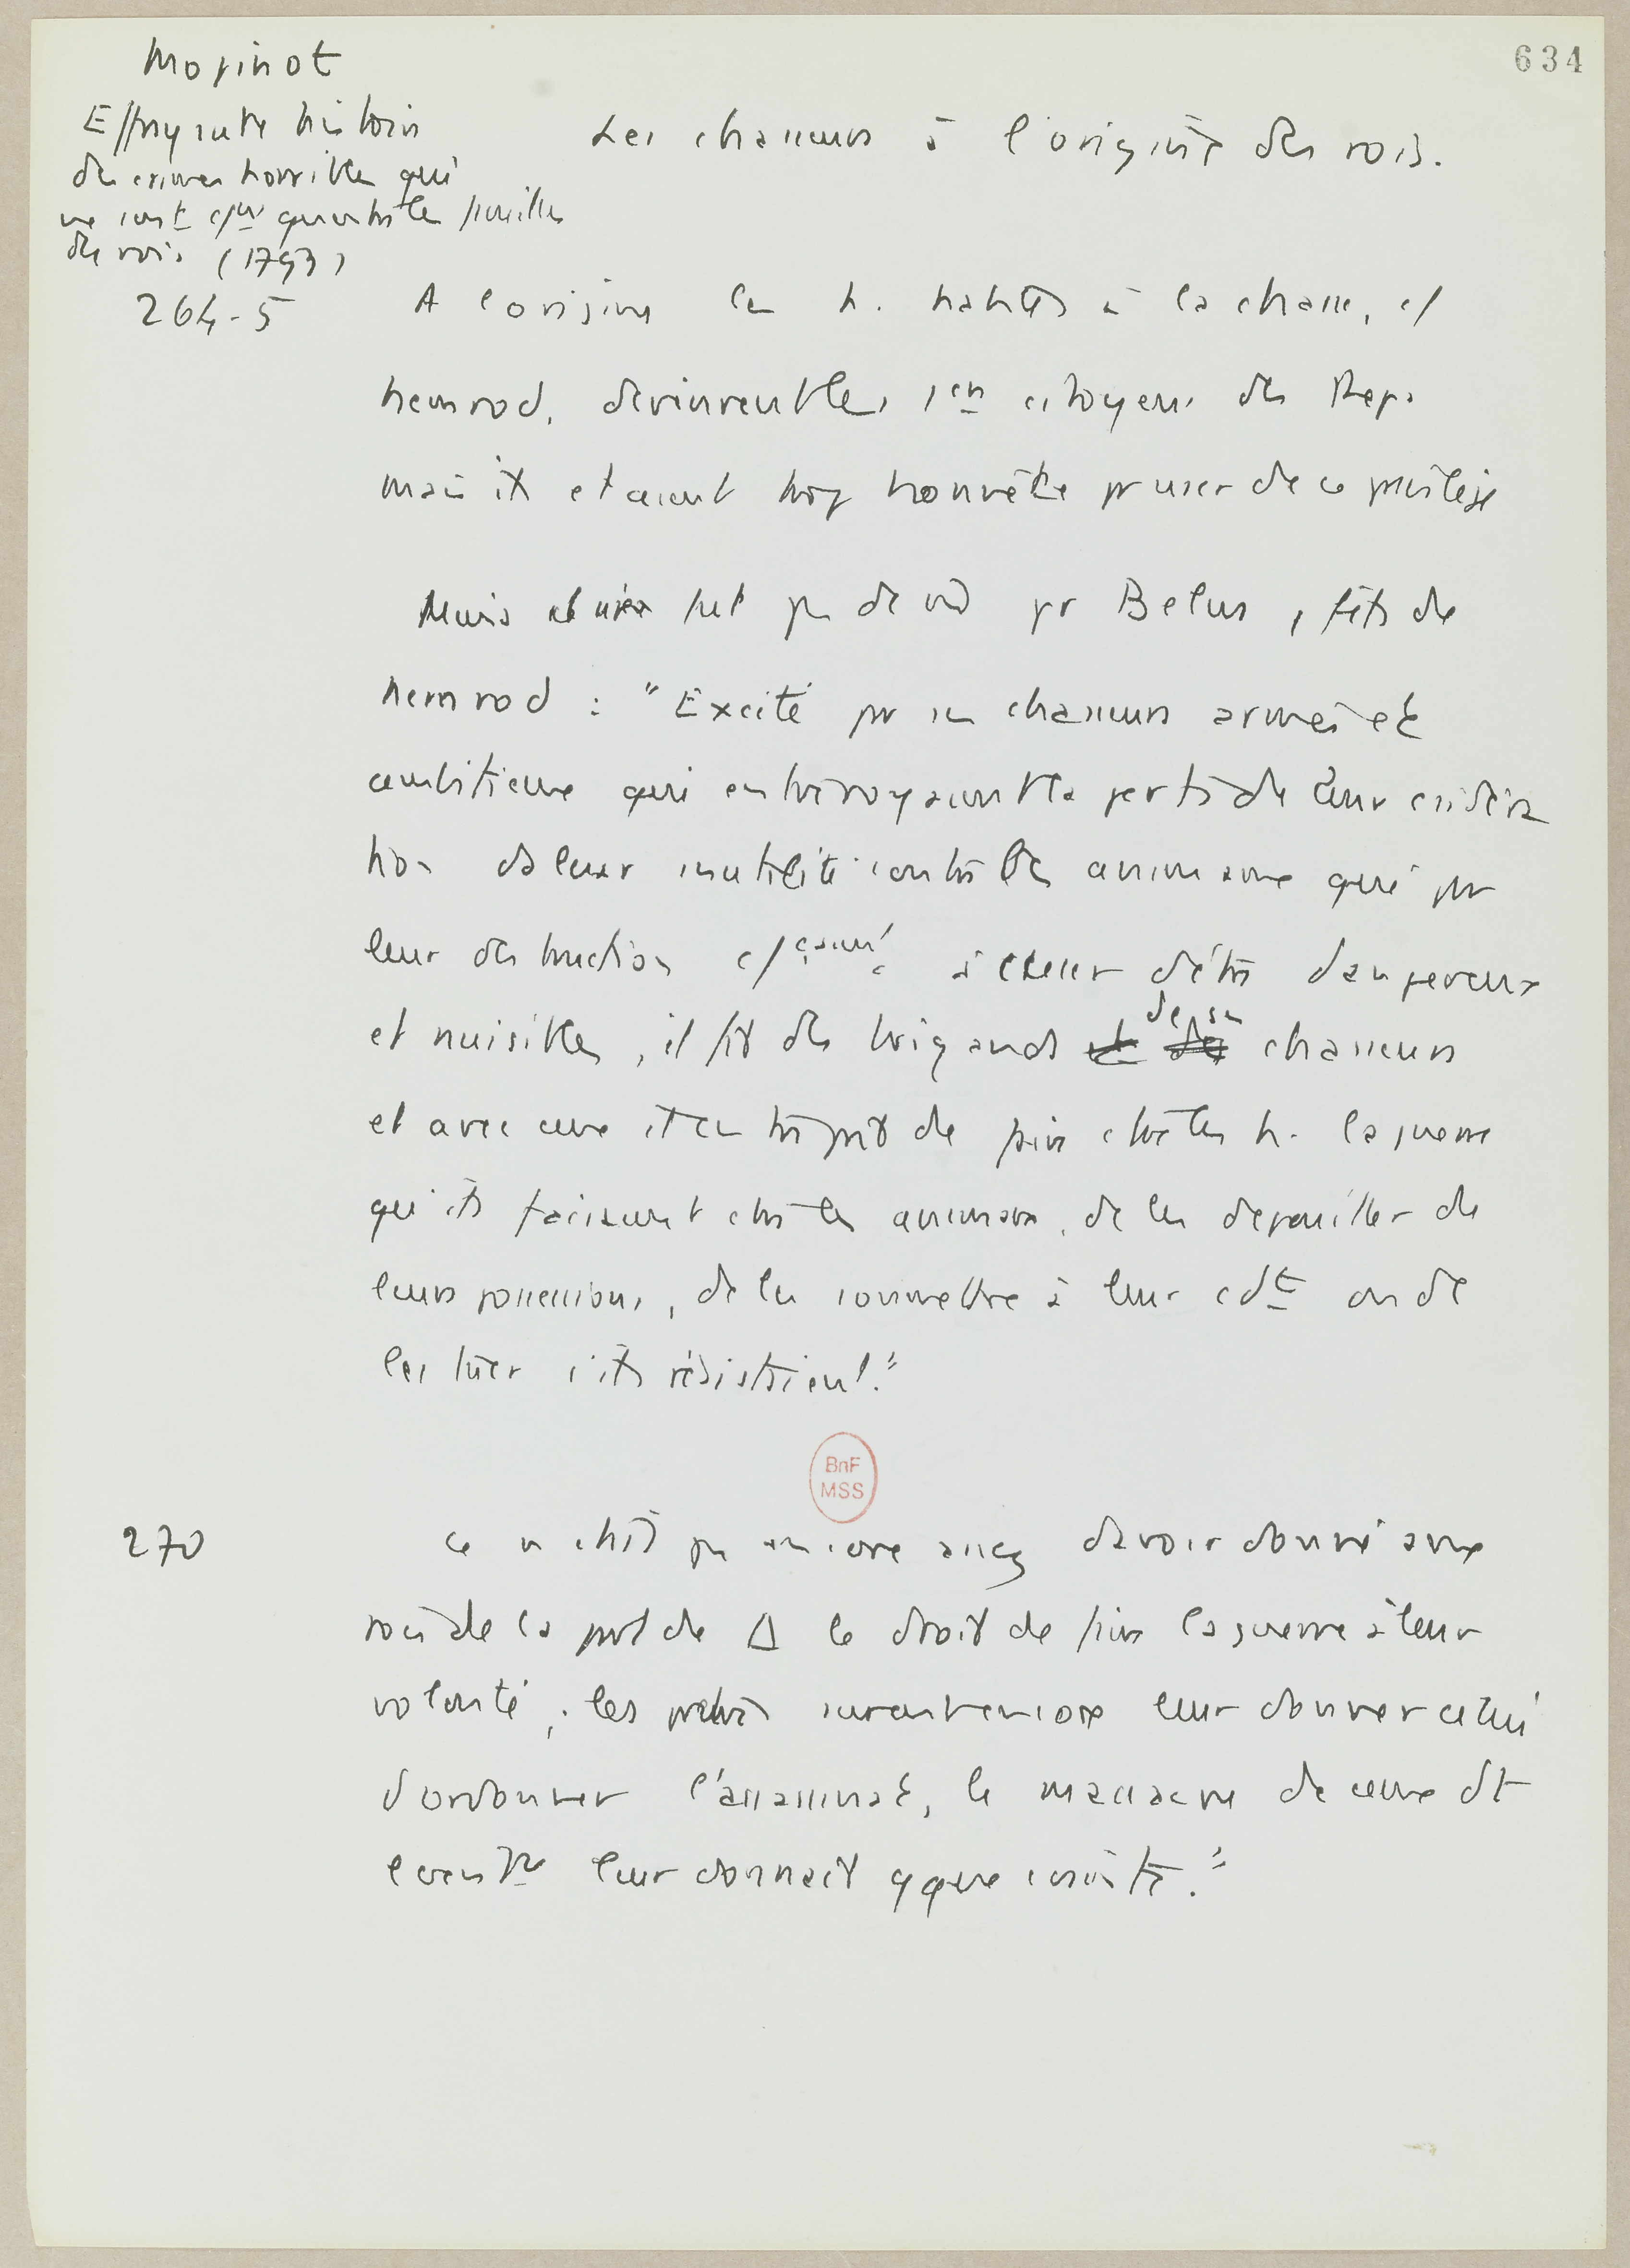 634
Mopinot
Effrayante histoire
des crimes horribles qui
ne sont c/ns qu'entre les familles
de rois (1793)
Les chasseurs à l'origine des rois.
264-5
A l'origine les h. habiles à la chasse, c/
Nemrod, devinrent les 1ers citoyens des Rep.
mais ils etaient trop honnêtes pr user de ce privilège
Mais il n'en fut pas de m pr Belus, fils de
Nemrod : "Excité par ses chasseurs armés et
ambitieux qui entrevoyaient la perte de leur considéra
tion ds leur inutilité contre les animaux qui par
leur destruction c/çaient à cesser d'être dangereux
et nuisibles, il fit des brigands de ses chasseurs
et avec eux il entreprit de faire ctre les h. la guerre
qu'ils faisaient ctre les animaux, de les depouiller de
leurs possessions, de les soumettre à leur cdt ou de
les tuer s'ils résistaient."
BnF
MSS
270
Ce n'était pas encore assez d'avoir donné aux
rois de la part de Δ le droit de faire la guerre à leur
volonté ; les prêtres surent encore leur donner celui
d'ordonner l'assassinat, le massacre de ceux dt
l'existence leur donnait qque crainte."